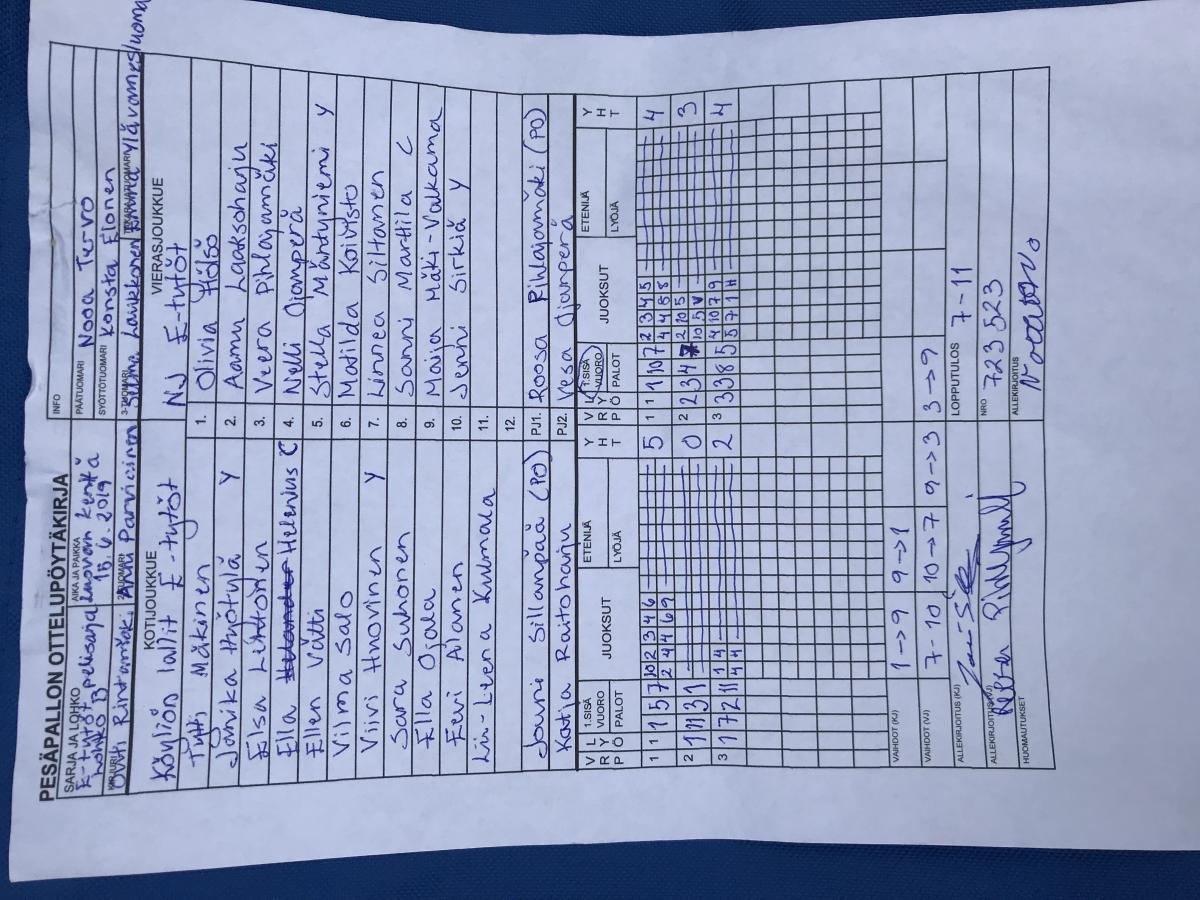 PESÄPALLON OTTELUPÖYTÄKIRJA
SARJA JA LOHKO
E-tytöt pelisarja
lohko B
AIKA JA PAIKKA
kenttä
15.6.2019
INFO
PÄÄTUOMARI Noora Tervo
SYÖTTÖTUOMARI Konsta Elonen
KIRJURI Outi Rintamäki
2-TUOMARI Anu Parviainen
3-TUOMARI Lavikkonen
TAKARAJATUOMARI Emma
KOTIJOUKKUE
Köyliön Lallit E-tytöt
VIERASJOUKKUE
NJ E-tytöt
Tytti Mäkinen 1. Olivia Hölsö
Jannika Hyötylä Y 2. Aamu Laaksoharju
Elsa Lehtonen 3. Veera Pihlavamäki
Ella Helenius C 4. Nelli Ojanperä
Ellen Vätti 5. Stella Mäntyniemi Y
Vilma Salo 6. Matilda Koivisto
Viivi Huovinen Y 7. Linnea Siltanen
Sara Suhonen 8. Sanni Marttila C
Ella Ojala 9. Maija Mäki-Valkama
Eevi Alanen 10. Jenni Sirkiä Y
Lii-Leena Kulmala 11.
12.
Jouni Sillanpää (PO) PJ1. Roosa Pihlajamäki (PO)
Katja Raitoharju PJ2. Vesa Ojanperä
V P L Y Ö 1.SISÄ VUORO PALOT JUOKSUT ETENIJÄ LYÖJÄ Y H T
V R P L Y Ö 1.SISÄ VUORO PALOT JUOKSUT ETENIJÄ LYÖJÄ Y H T
1 1 1 5 7 10 2 3 4 6 5
2 4 4 6 9
1 1 1 10 7 2 3 4 5 4
4 4 5 8
2 1 11 3 1 0
2 2 3 4 7 2 10 5 3
10 5 V
3 1 7 2 11 1 4 2
4 4
3 3 3 8 5 4 10 7 9 4
5 7 1 H
VAIHDOT (KJ) 1→9 9→1
VAIHDOT (VJ) 7-10 10→7 9→3 3→9
ALLEKIRJOITUS (KJ)
LOPPUTULOS 7-11
ALLEKIRJOITUS (VJ)
NRO 723523
HUOMAUTUKSET
ALLEKIRJOITUS